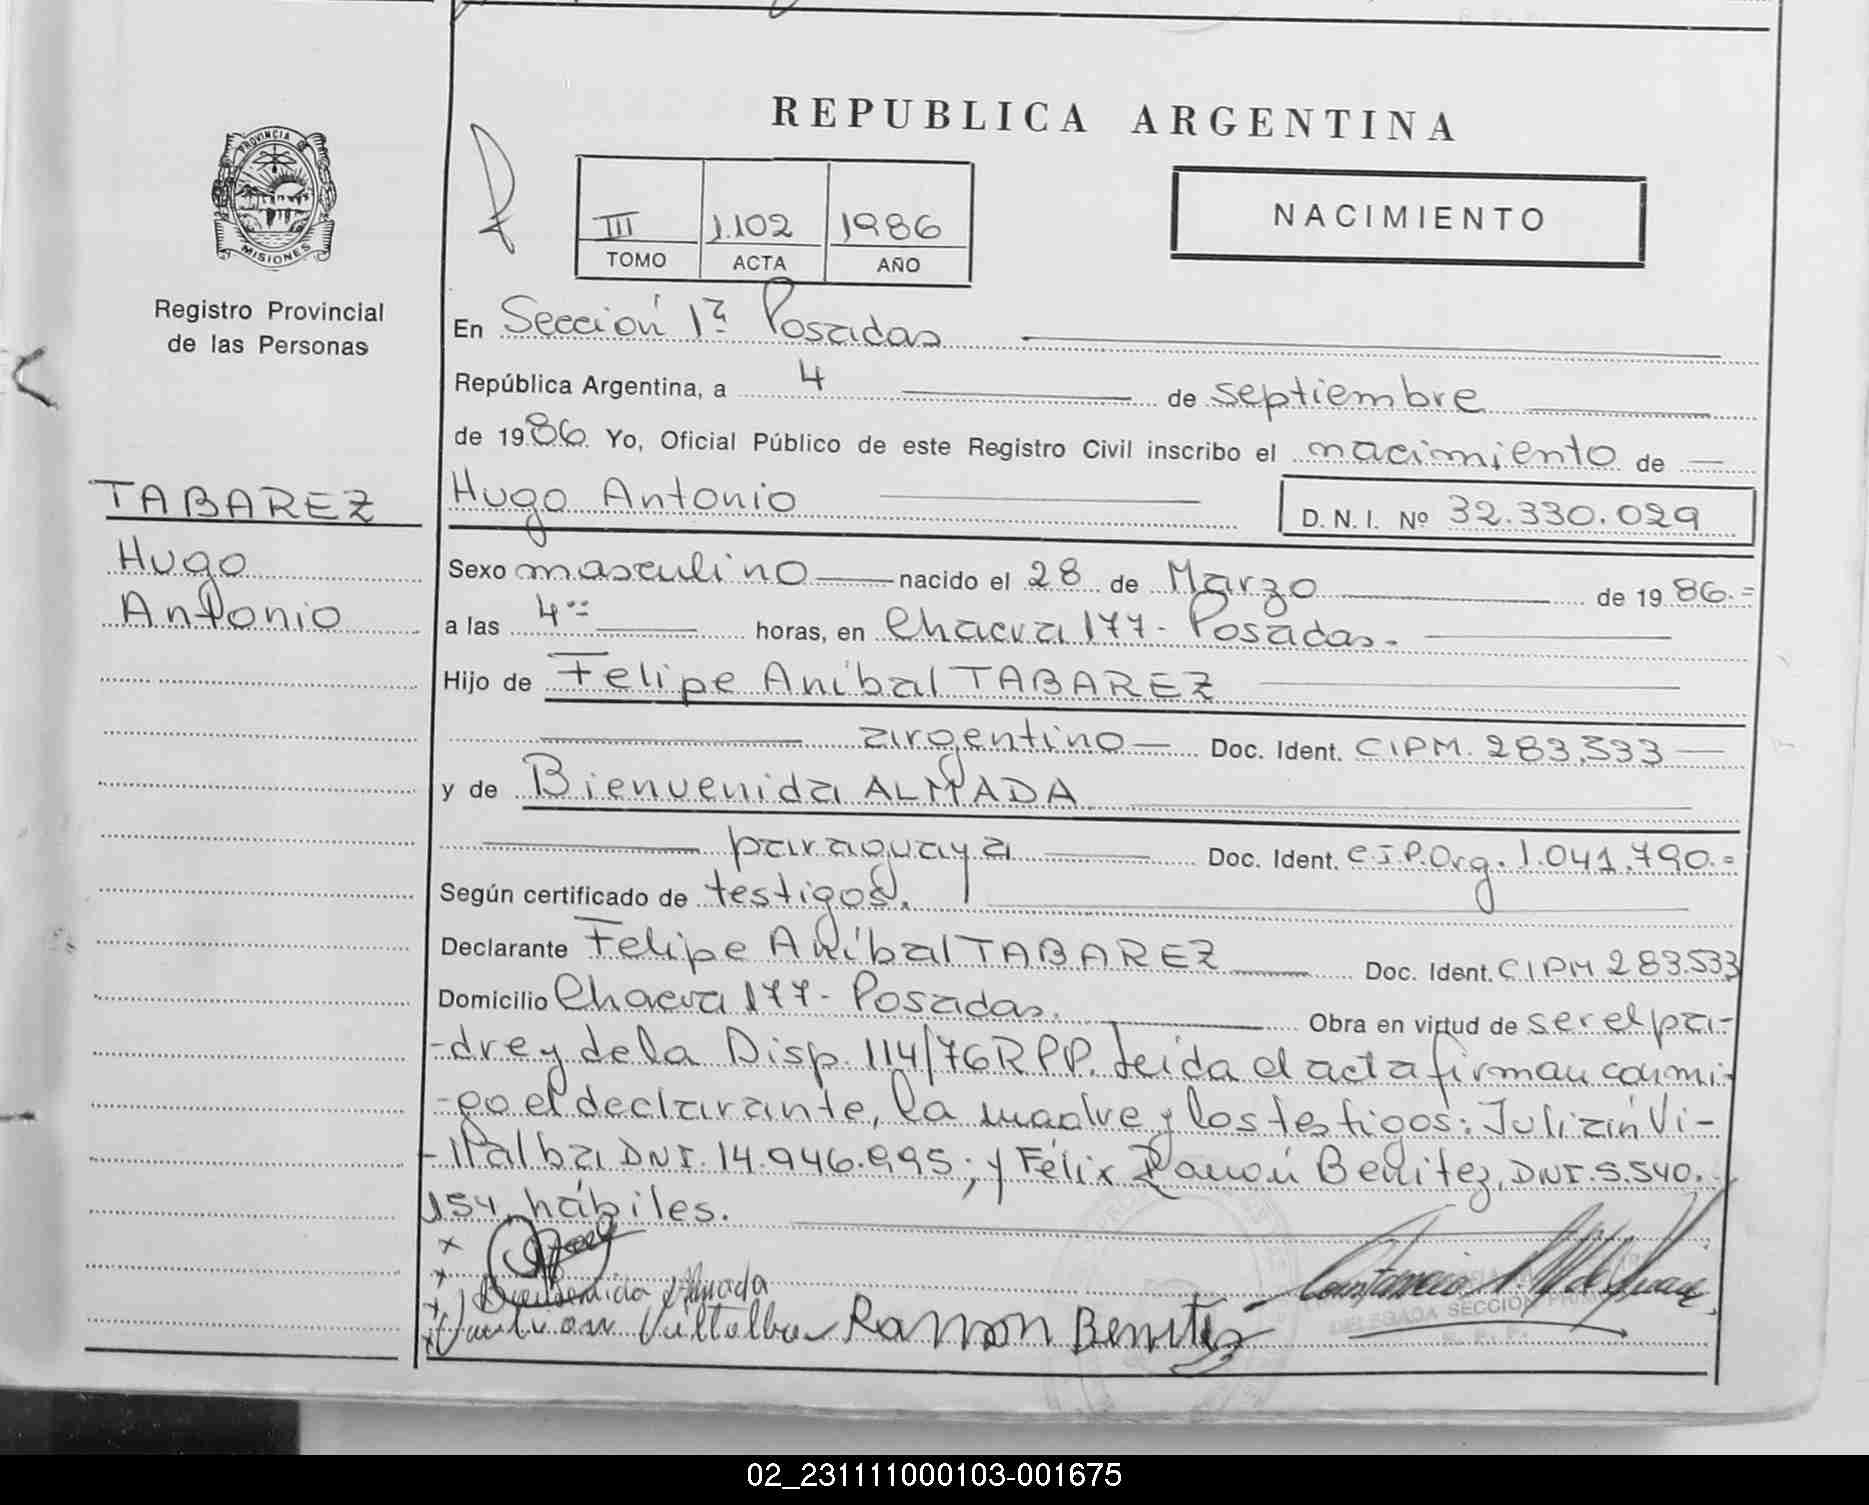 REPUBLICA ARGENTINA
PROVINCIA DE
MISIONES
Registro Provincial
de las Personas
III 1.102 1986
TOMO ACTA AÑO
NACIMIENTO
En Sección 1ª Posadas
República Argentina, a 4 de septiembre
de 1986. Yo, Oficial Público de este Registro Civil inscribo el nacimiento de
TABAREZ
Hugo
Antonio
Hugo Antonio D.N.I. Nº 32.330.029
Sexo masculino nacido el 28 de Marzo de 1986.=
a las 4 horas, en Chacra 177- Posadas.
Hijo de Felipe Aníbal TABAREZ
argentino Doc. Ident. CIPM. 283.533
y de Bienvenida ALMADA
paraguaya Doc. Ident. C.I.P.Org. 1.041.790.=
Según certificado de testigos.
Declarante Felipe Aníbal TABAREZ Doc. Ident. CIPM 283.533
Domicilio Chacra 177- Posadas. Obra en virtud de ser el pa-
-dre y de la Disp. 114/76 RPP. Leída el acta firman conmi-
-go el declarante, la madre y los testigos: Julián Vi-
-llalba DNI. 14.946.995; y Félix Ramón Benitez, DNI. 5.540.
154, hábiles.
Bienvenida Almada
Villalba Ramon Benitez
DELEGADA SECCIÓN PRIMERA
R. P. P.
02_231111000103-001675